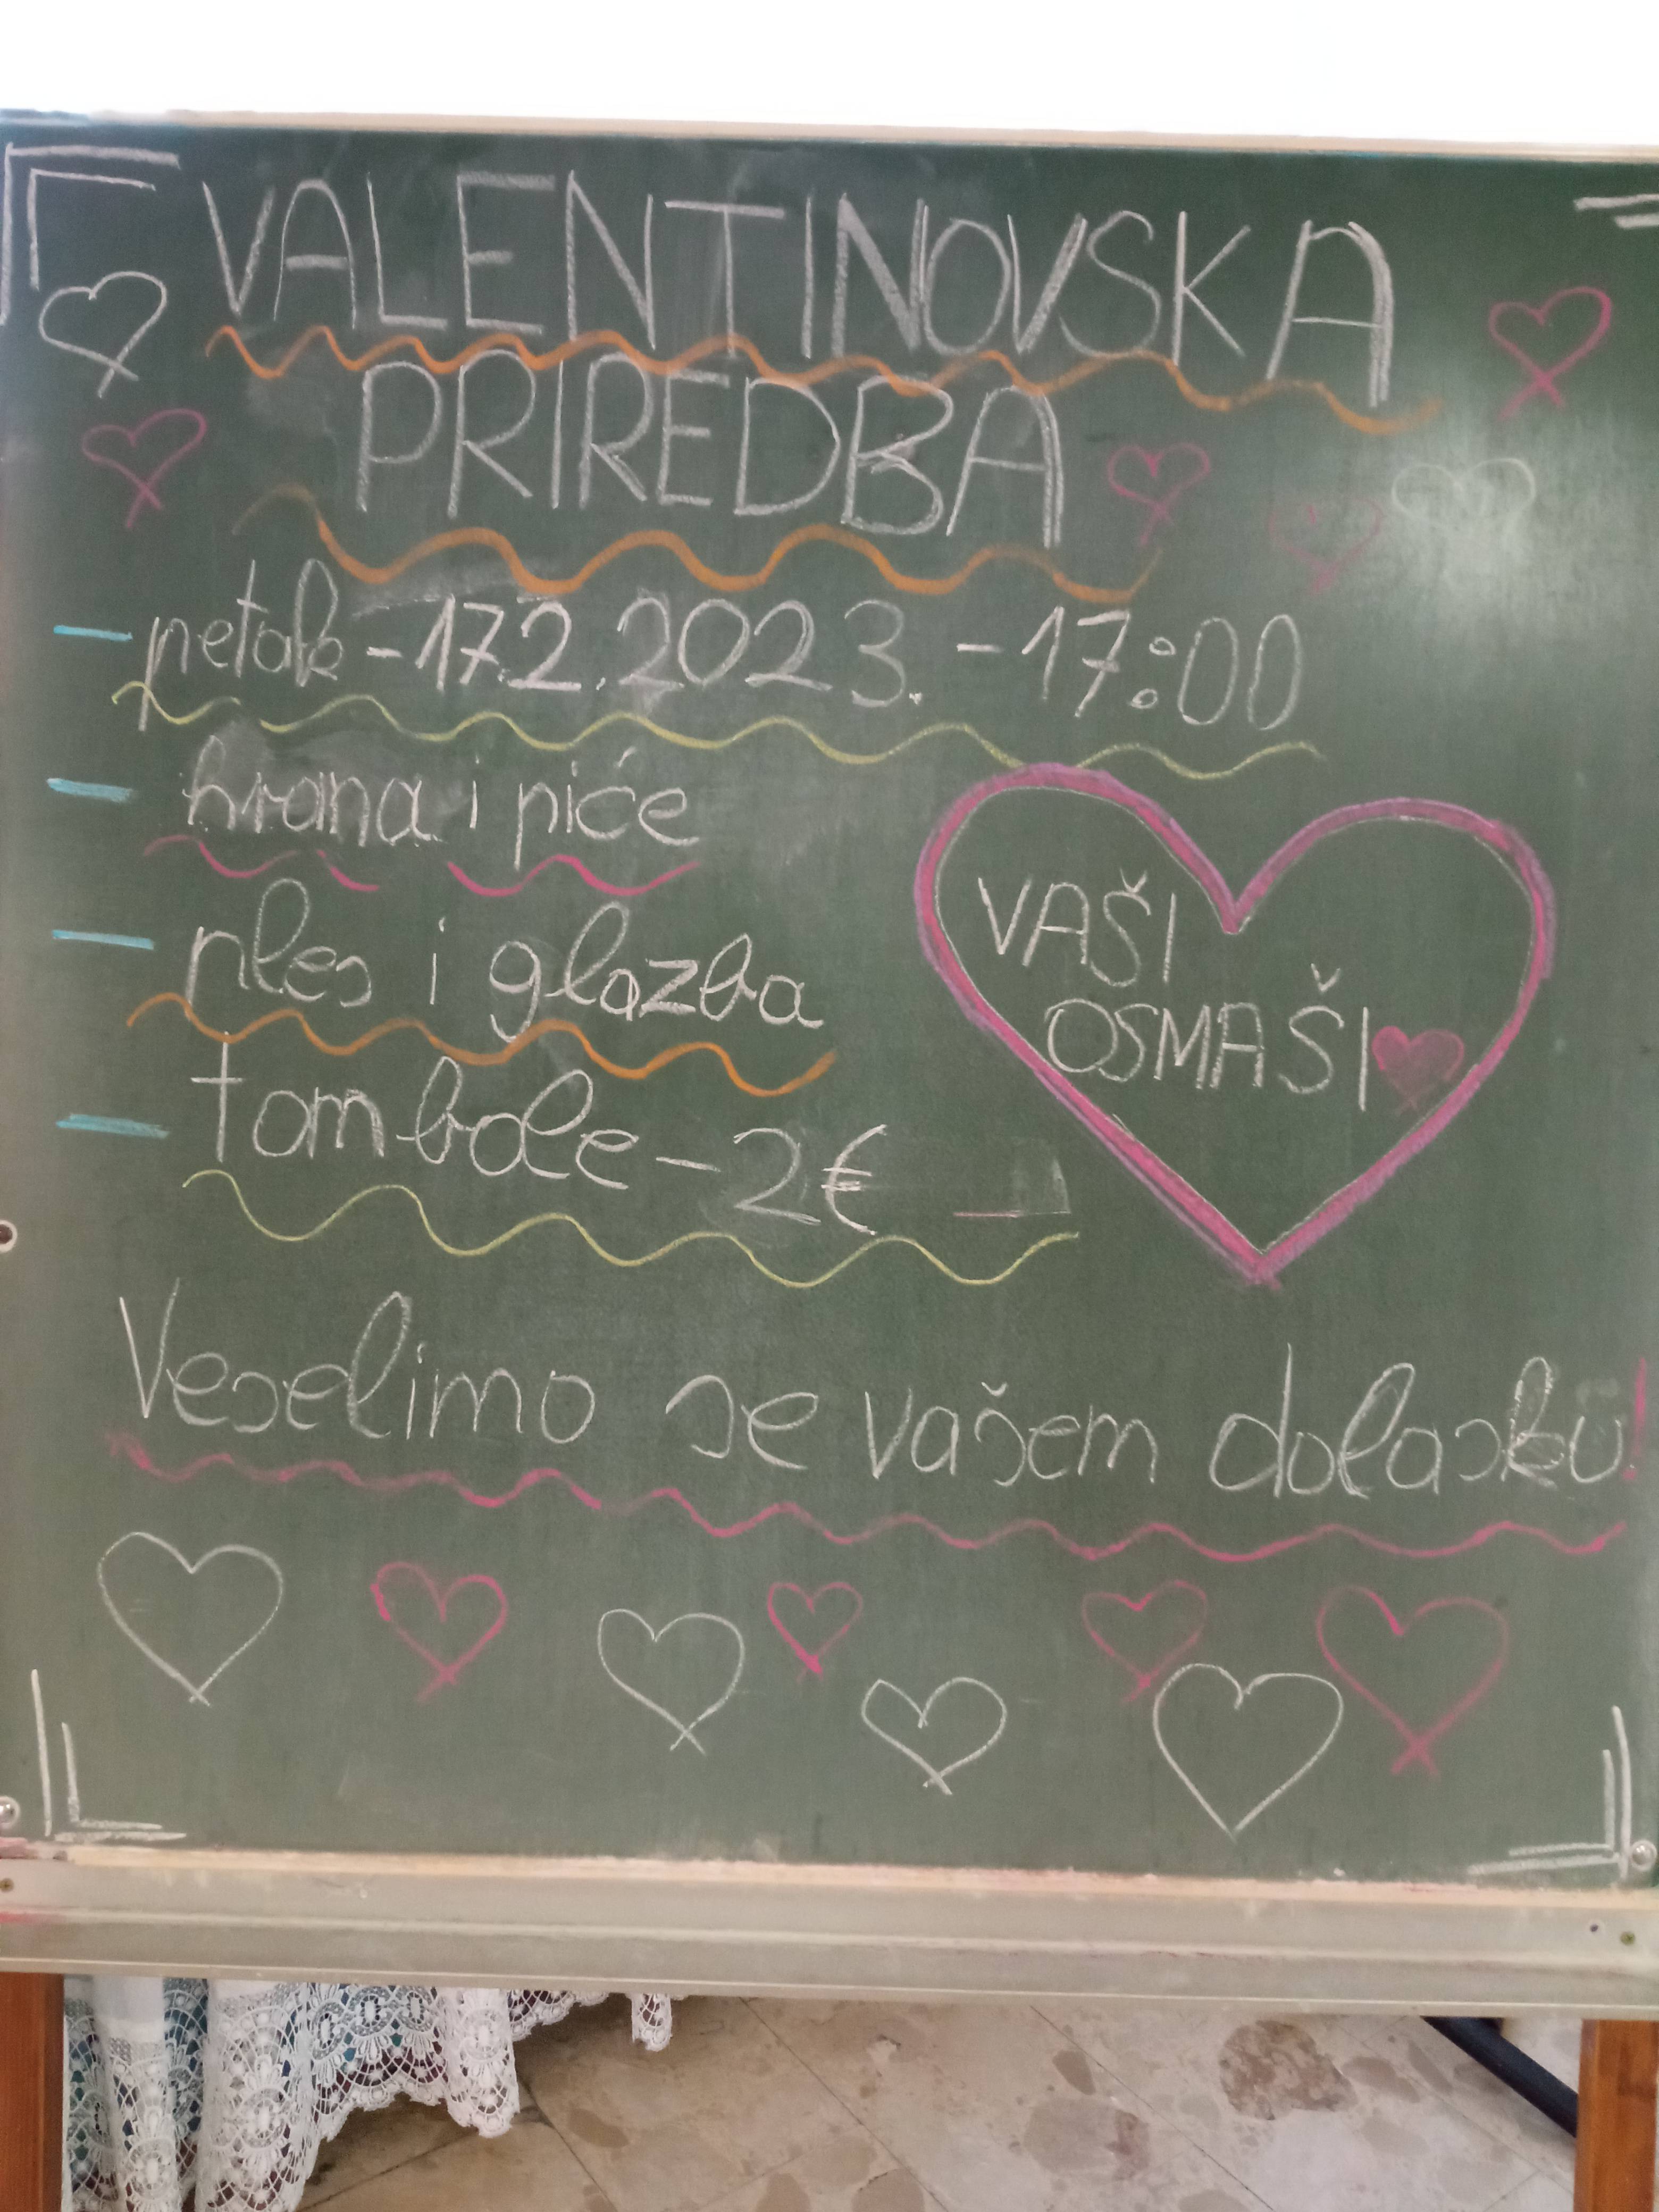 VALENTINOVSKA
PRIREDBA
- petak - 17.2.2023. - 17:00
- hrana i piće
- ples i glazba
- tombole - 2€
VAŠI
OSMAŠI
Veselimo se vašem dolasku!